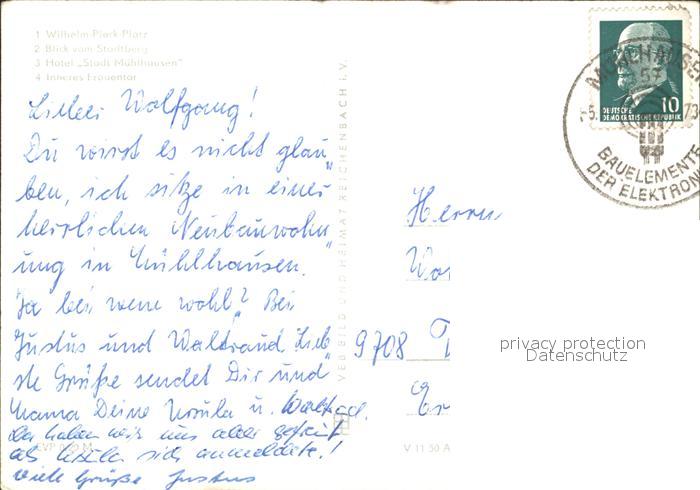 1 Wilhelm-Pieck-Platz
2 Blick vom Stadtberg
3 Hotel „Stadt Mühlhausen"
4 Inneres Frauentor
Lieber Wolfgang!
Du wirst es nicht glau„
ben, ich sitze in einer
herrlichen Neubauwohn„
ung in Mühlhausen.
Ja bei wem wohl? Bei
Justus und Waltraud. Lieb„
ste Grüße sendet Dir und
Mama Deine Ursula u. Waltraud.
Da haben wir uns aber gefreut
als sich anmeldete!
viele Grüße Justus
VEB BILD UND HEIMAT REICHENBACH I. V.
V 11 50 A
DEUTSCHE
DEMOKRATISCHE REPUBLIK
10
MÜHLHAUSEN
57
BAUELEMENTE
DER ELEKTRON
Herrn
9708
privacy protection
Datenschutz